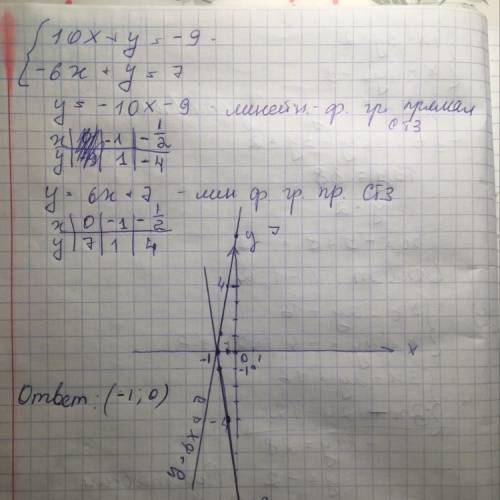 10x + y = -9
-6x + y = 7
y = -10x - 9 - линейн. ф. гр. прямая
x | -1 | -1/2
y | 1 | -4
y = 6x + 7 - лин ф. гр. пр.
x | 0 | -1 | -1/2
y | 7 | 1 | 4
y 7
4
-1 0 1 x
-1
-4
Ответ: (-1; 0)
y = 6x + 7